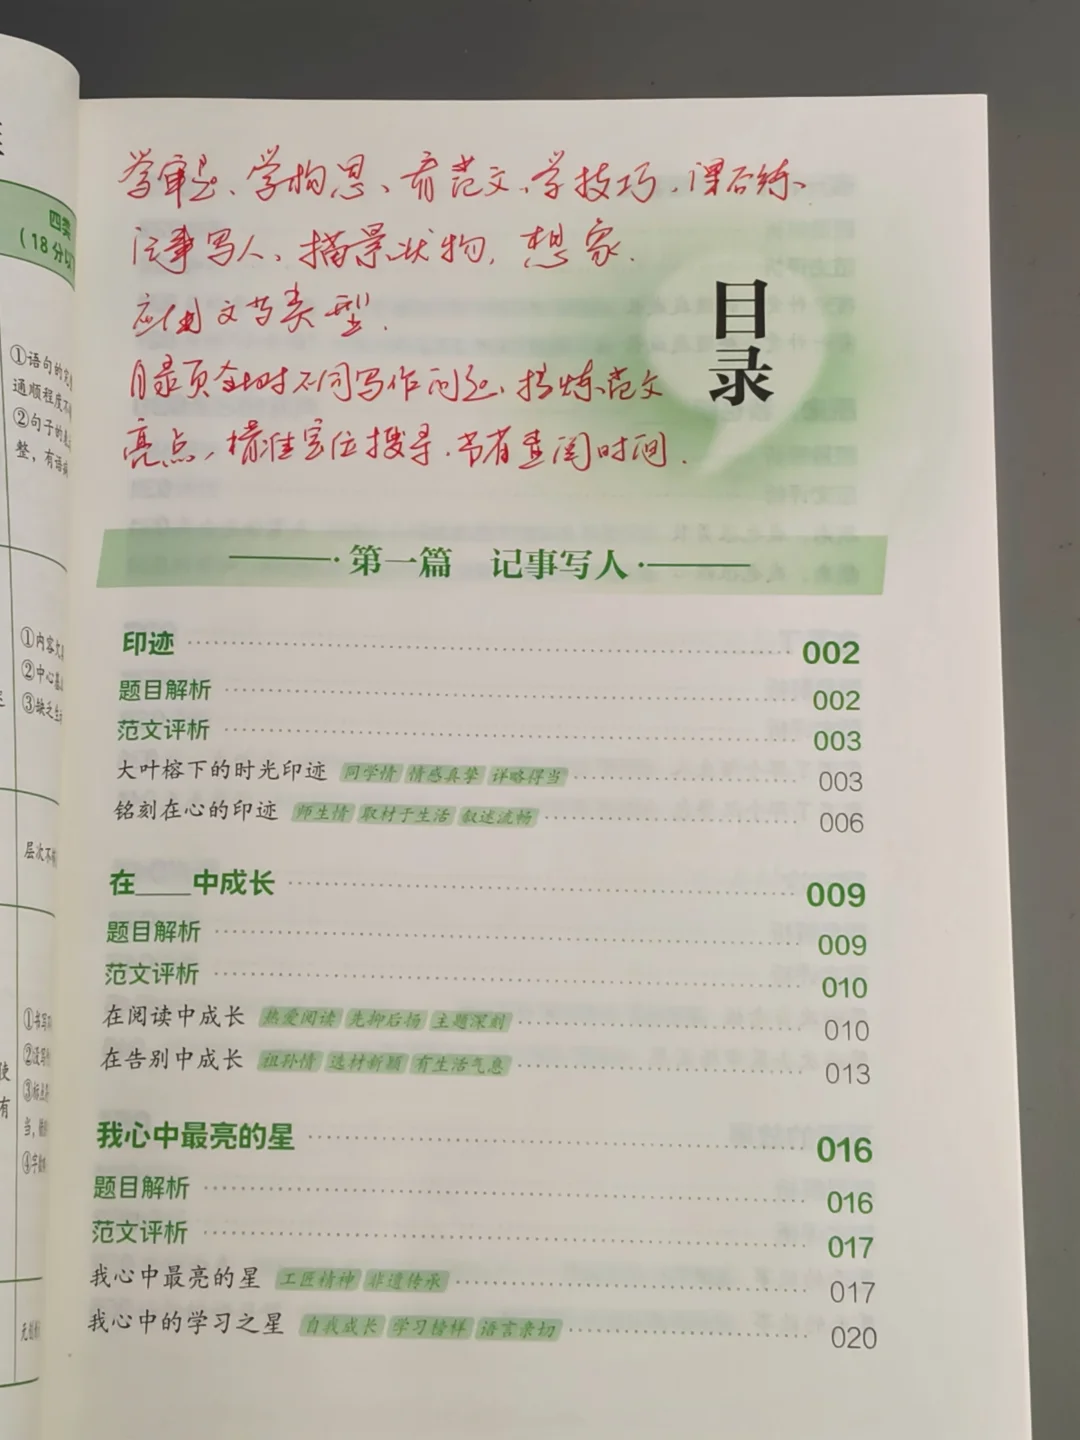 四类
(18分以
①语句的完
通顺程度不
②句子的
整，有语病
①内容
②中心
③缺乏生
层次不
使
有
①书写
②没写
③标点
当，
④字
无
学审题、学构思、看范文、学技巧、课后练、
记事写人、描景状物，想象.
应用文等类型.
目录页针对不同写作问题，提炼范文
亮点，精准定位搜寻.节省查阅时间.
目录
第一篇 记事写人
印迹 002
题目解析 002
范文评析 003
大叶榕下的时光印迹 同学情 情感真挚 详略得当 003
铭刻在心的印迹 师生情 取材于生活 叙述流畅 006
在____中成长 009
题目解析 009
范文评析 010
在阅读中成长 热爱阅读 先抑后扬 主题深刻 010
在告别中成长 祖孙情 选材新颖 有生活气息 013
我心中最亮的星 016
题目解析 016
范文评析 017
我心中最亮的星 工匠精神 非遗传承 017
我心中的学习之星 自我成长 学习榜样 语言亲切 020